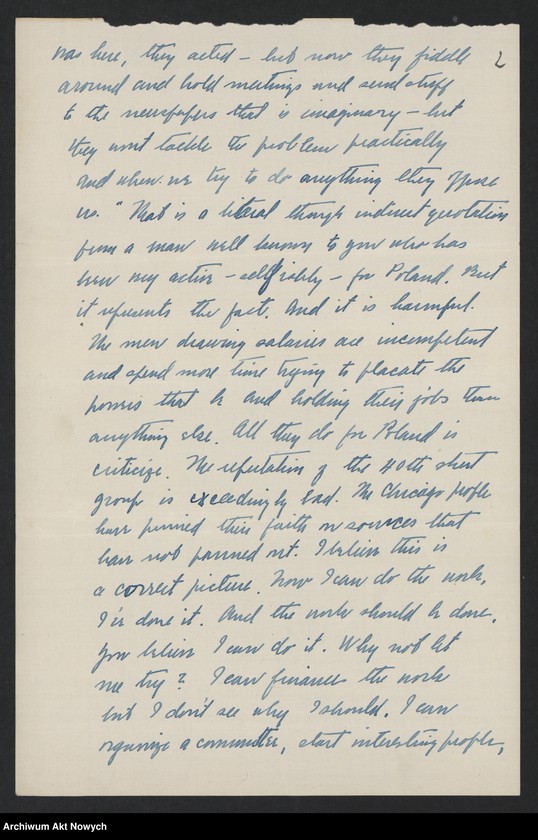 2
was here, they acted – but now they fiddle
around and hold meetings and send stuff
to the newspapers that is imaginary – but
they wont tackle the problem practically
and when we try to do anything they oppose
us." That is a literal though indirect quotation
from a man well known to you who has
been very active – selfishly – for Poland. But
it represents the fact. And it is harmful.
"The men drawing salaries are incompetent
and spend more time trying to placate the
powers that be and holding their jobs than
anything else. All they do for Poland is
criticize. The reputation of the 40th street
group is exceedingly bad. The Chicago people
have pinned their faith on sources that
have not panned out. I believe this is
a correct picture. Now I can do the work,
I've done it. And the work should be done.
You believe I can do it. Why not let
me try? I can finance the work
but I don't see why I should. I can
organize a committee, start interesting people,
Archiwum Akt Nowych